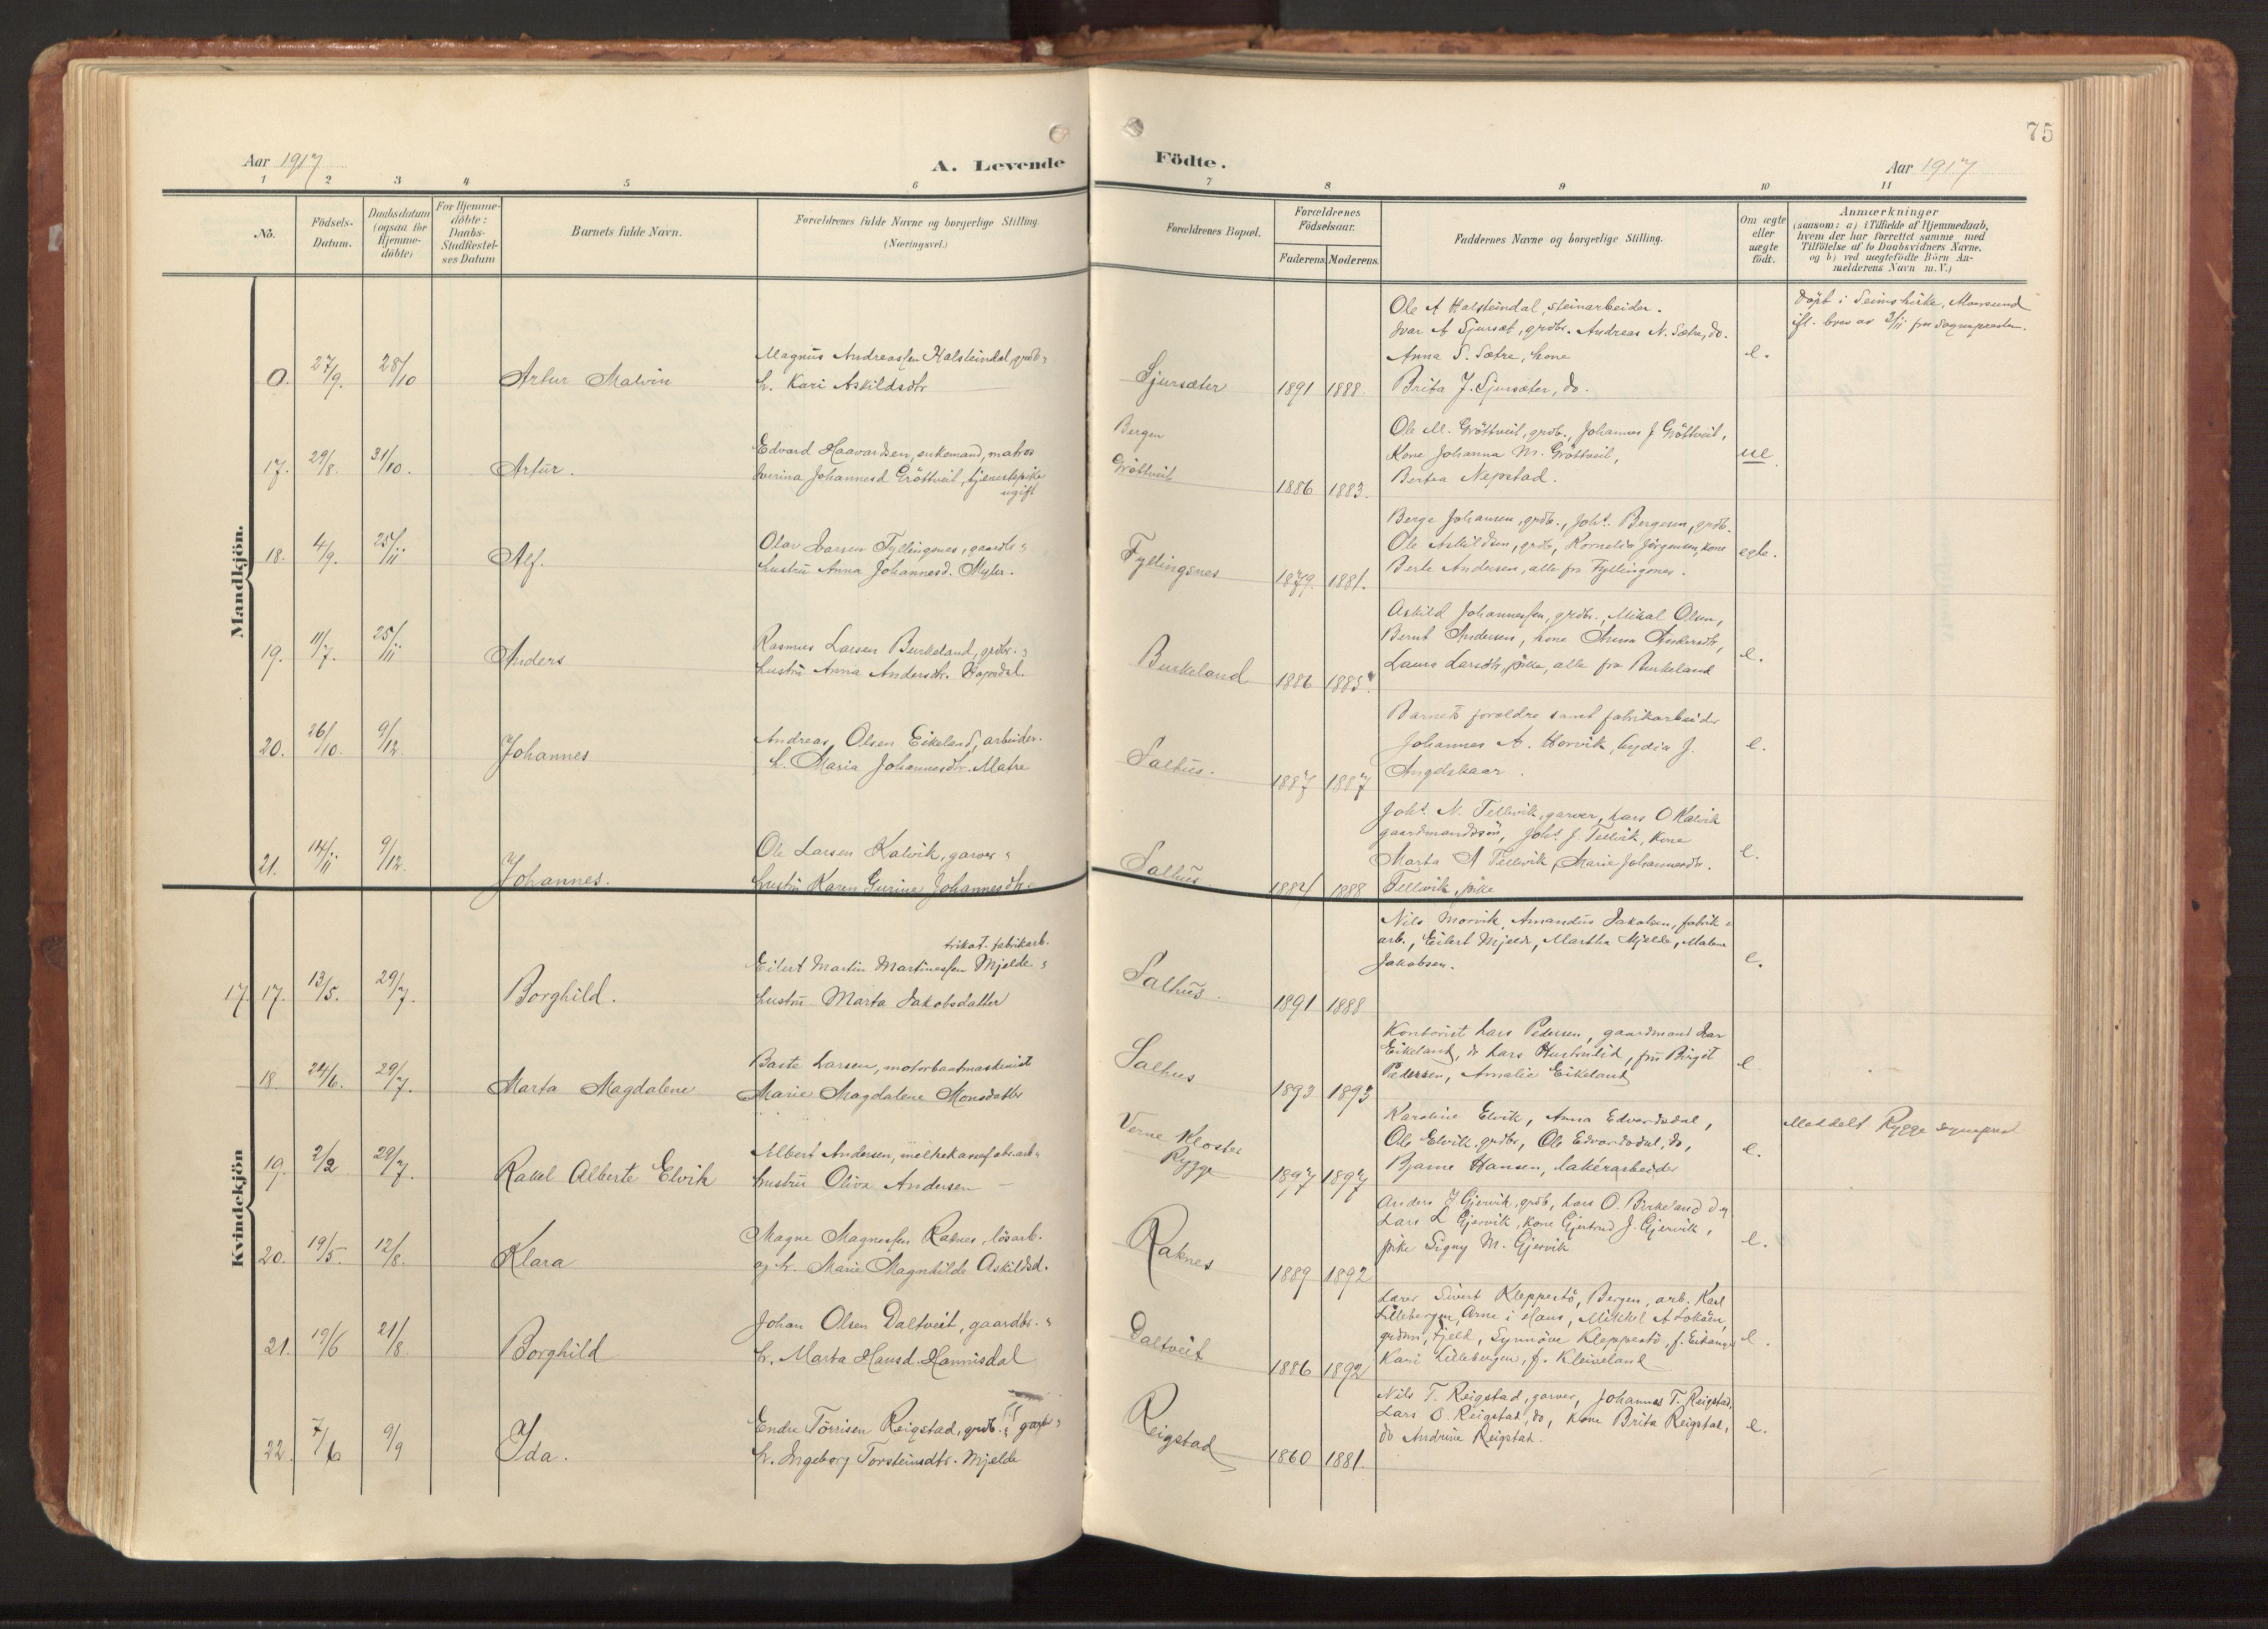 75
Aar 1917
A. Levende Födte.
Aar 1917
1 2 3 4 5 6 7 8 9 10 11
No.
Födsels-
Datum.
Daabsdatum
(ogsaa for
Hjemme-
döbte)
For Hjemme-
döbte:
Daabs-
Stadfæstel-
ses Datum
Barnets fulde Navn.
Forældrenes fulde Navne og borgerlige Stilling.
(Næringsvei.)
Forældrenes Bopæl.
Forældrenes
Födselsaar.
Faderens. Moderens.
Faddernes Navne og borgerlige Stilling.
Om ægte
eller
uægte
födt.
Anmærkninger
(saasom: a) i Tilfælde af Hjemmedaab,
hvem der har forrettet samme med
Tilföielse af to Daabsvidners Navne.
og b) ved uægtefödte Börn An-
melderens Navn m. V.)
Mandkjön.
0. 27/9. 28/10 Artur Malvin
Magnus Andreassen Halsteindal, grdb.
h. Kari Askildsdtr
Sjursæter 1891 1888.
Ole A Halsteindal, steinarbeider.
Ivar A Sjursæt, grdbr. Andreas N. Sætre, do.
Anna S. Sætre, kone
Brita J. Sjursæter, do.
e.
Döpt i Seims kirke,
ifl. brev av 3/11 fra sogneprest
17. 29/8. 31/10. Artur.
Edvard Haavardsen, enkemand, matros
Iverina Johannesd Gröttveit, tjenestepike
ugift
Bergen
Gröttveit
1886 1883.
Ole M. Gröttveit, grdb., Johannes J Gröttveit,
Kone Johanna M. Gröttveit,
Bertea Nepstad.
ue.
18. 4/9. 25/11 Alf.
Olav Larsen Fyllingsnes, gaardbr
hustru Anna Johannesd. Myler.
Fyllingsnes 1879. 1881.
Berge Johansen, grdb., Johs. Bergesen, grdb.
Ole Askildsen, grdb, Kornelia Jörgensen, kone
Berte Andersen, alle fra Fyllingsnes.
egte.
19. 11/7. 25/11 Anders
Rasmus Larsen Burkeland, grdbr.
hustru Anna Andersdtr.
Burkeland 1886 1885.
Askild Johannessen, grdbr., Mikal Olsen,
Bernt Andersen, kone Anna Andersdtr,
Laura Larsdtr, pike, alle fra Burkeland
e.
20. 26/10. 9/12. Johannes
Andreas Olsen Eikeland, arbeider.
h. Maria Johannesdtr. Matre
Salhus. 1887 1887
Barnets forældre samt fabrikarbeider
Johannes A. Horvik, Lydia J.
Angelskaar.
e.
21. 14/11 9/12. Johannes.
Ole Larsen Kalvik, garver
hustru Karen Gurine Johannesdtr.
Salhus. 1884 1888
Johs. N. Tellevik, garver, Lars O Kalvik
gaardmandssön, Johs. J. Tellvik, kone
Marta A Tellevik, Marie Johannesdtr.
Tellevik, pike
e.
Kvindekjön
17. 17. 13/5. 29/7. Borghild.
trikot. fabrikarb.
Eilert Martin Martinessen Mjelde
hustru Marta Jakobsdatter
Salhus. 1891 1888
Nils Morvik, Amandus Jakobsen, fabrik-
arb., Eilert Mjelde, Martha Mjelde, Malene
Jakobsen.
e.
18 24/6. 29/7. Marta Magdalene
Baste Larsen, motorbaatmaskinist
Marie Magdalene Monsdatter
Salhus 1893 1893
Kontorist Lars Pedersen, gaardmand Lar
Eikeland, do Lars Hustvulid, fru Birgit
Pedersen, Amalie Eikeland
e
19. 2/2 29/7. Rakel Alberte Elvik
Albert Andersen, melkekand fabr.arb.
hustru Oliva Andersen
Verne Kloster
Rygge
1897 1897
Karoline Elvik, Anna Edvardsdal,
Ole Elvik, grdbr, Ole Edvardsdal, do,
Bjarne Hansen, lakérarbeider
e.
Meddelt Rygge sogneprest
20. 19/5. 12/8. Klara
Magne Magnessen Raknes, lösarb.
og h. Marie Magnhilde Askildsd.
Raknes 1889 1892
Anders J Gjervik, grdb, Lars O. Birkeland do,
Lars L Gjervik, kone Gjertrud J. Gjervik,
pike Signy M. Gjervik
e.
21. 19/6 21/8 Borghild
Johan Olsen Daltveit, gaardbr.
h. Marta Hansd. Hannisdal
Daltveit 1886 1892
Lærer Sivert Kleppestö, Bergen, arb. Karl
Lillebergen, Arne i Haus, Mikkel A Loköen,
grdmn, Fjeld, Synnöve Kleppestö, f. Eikanger
Kari Lillebergen, f. Kleiveland
e.
22. 7/6 9/9 Ida.
Endre Törrisen Reigstad, grdb.
h. Ingeborg Torsteinsdtr. Mjelde
Reigstad 1860 1881.
Nils T. Reigstad, garver, Johannes T. Reigstad,
Lars O. Reigstad, do, kone Brita Reigstad,
do Andrine Reigstad.
e.